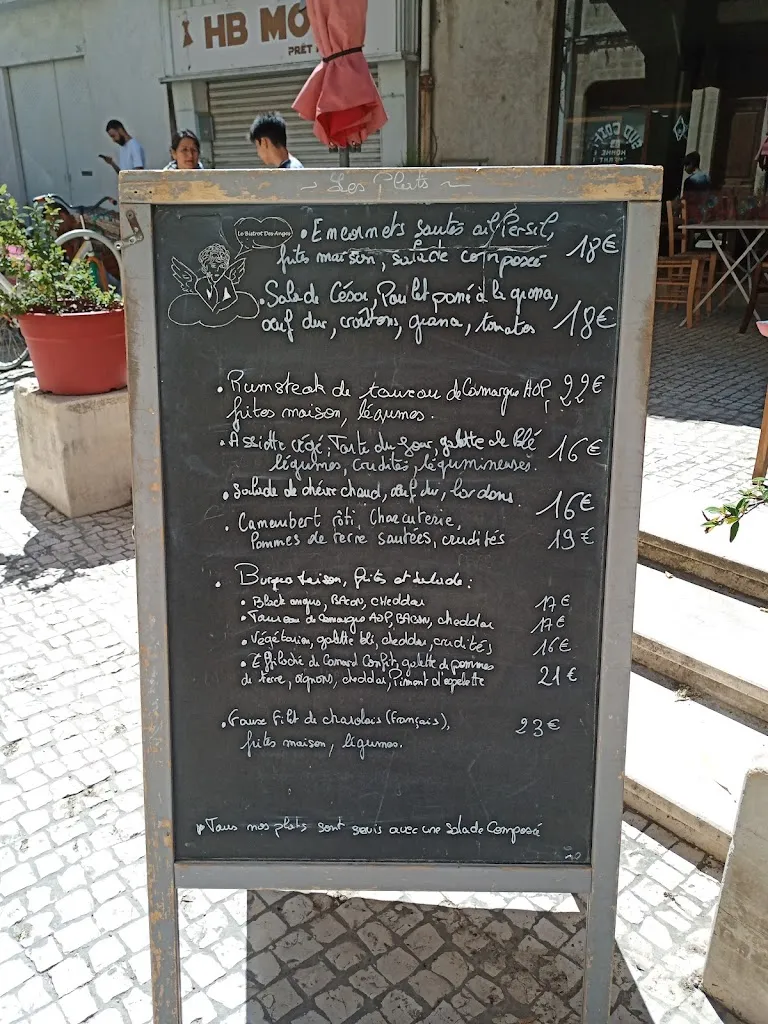 HB MO
PRÊT
~ Les Plats ~
Le Bistrot Des Anges
• Encornets sautés ail/Persil,
frites maison, salade composée 18€
• Salade César, Poulet pané à la grana,
œuf dur, croûtons, grana, tomates 18€
• Rumsteak de taureau de Camargue AOP, 22€
frites maison, légumes.
• Assiette végé, Tarte du Jour, galette de blé 16€
légumes, crudités, légumineuses.
• Salade de chèvre chaud, œuf dur, lardons. 16€
• Camembert rôti, Charcuterie,
Pommes de terre sautées, crudités 19€
• Burger Maison, frites et salade :
• Black angus, BACON, CHEDDAR 17€
• Taureau de Camargue AOP, BACON, cheddar 17€
• Végétarien, galette blé, cheddar, crudités 16€
• Effiloché de Canard Confit, galette de pommes
de terre, oignons, cheddar, Piment d'espelette 21€
• Faux Filet de charolais (Français), 23€
frites maison, légumes.
Tous nos plats sont servis avec une salade Composée